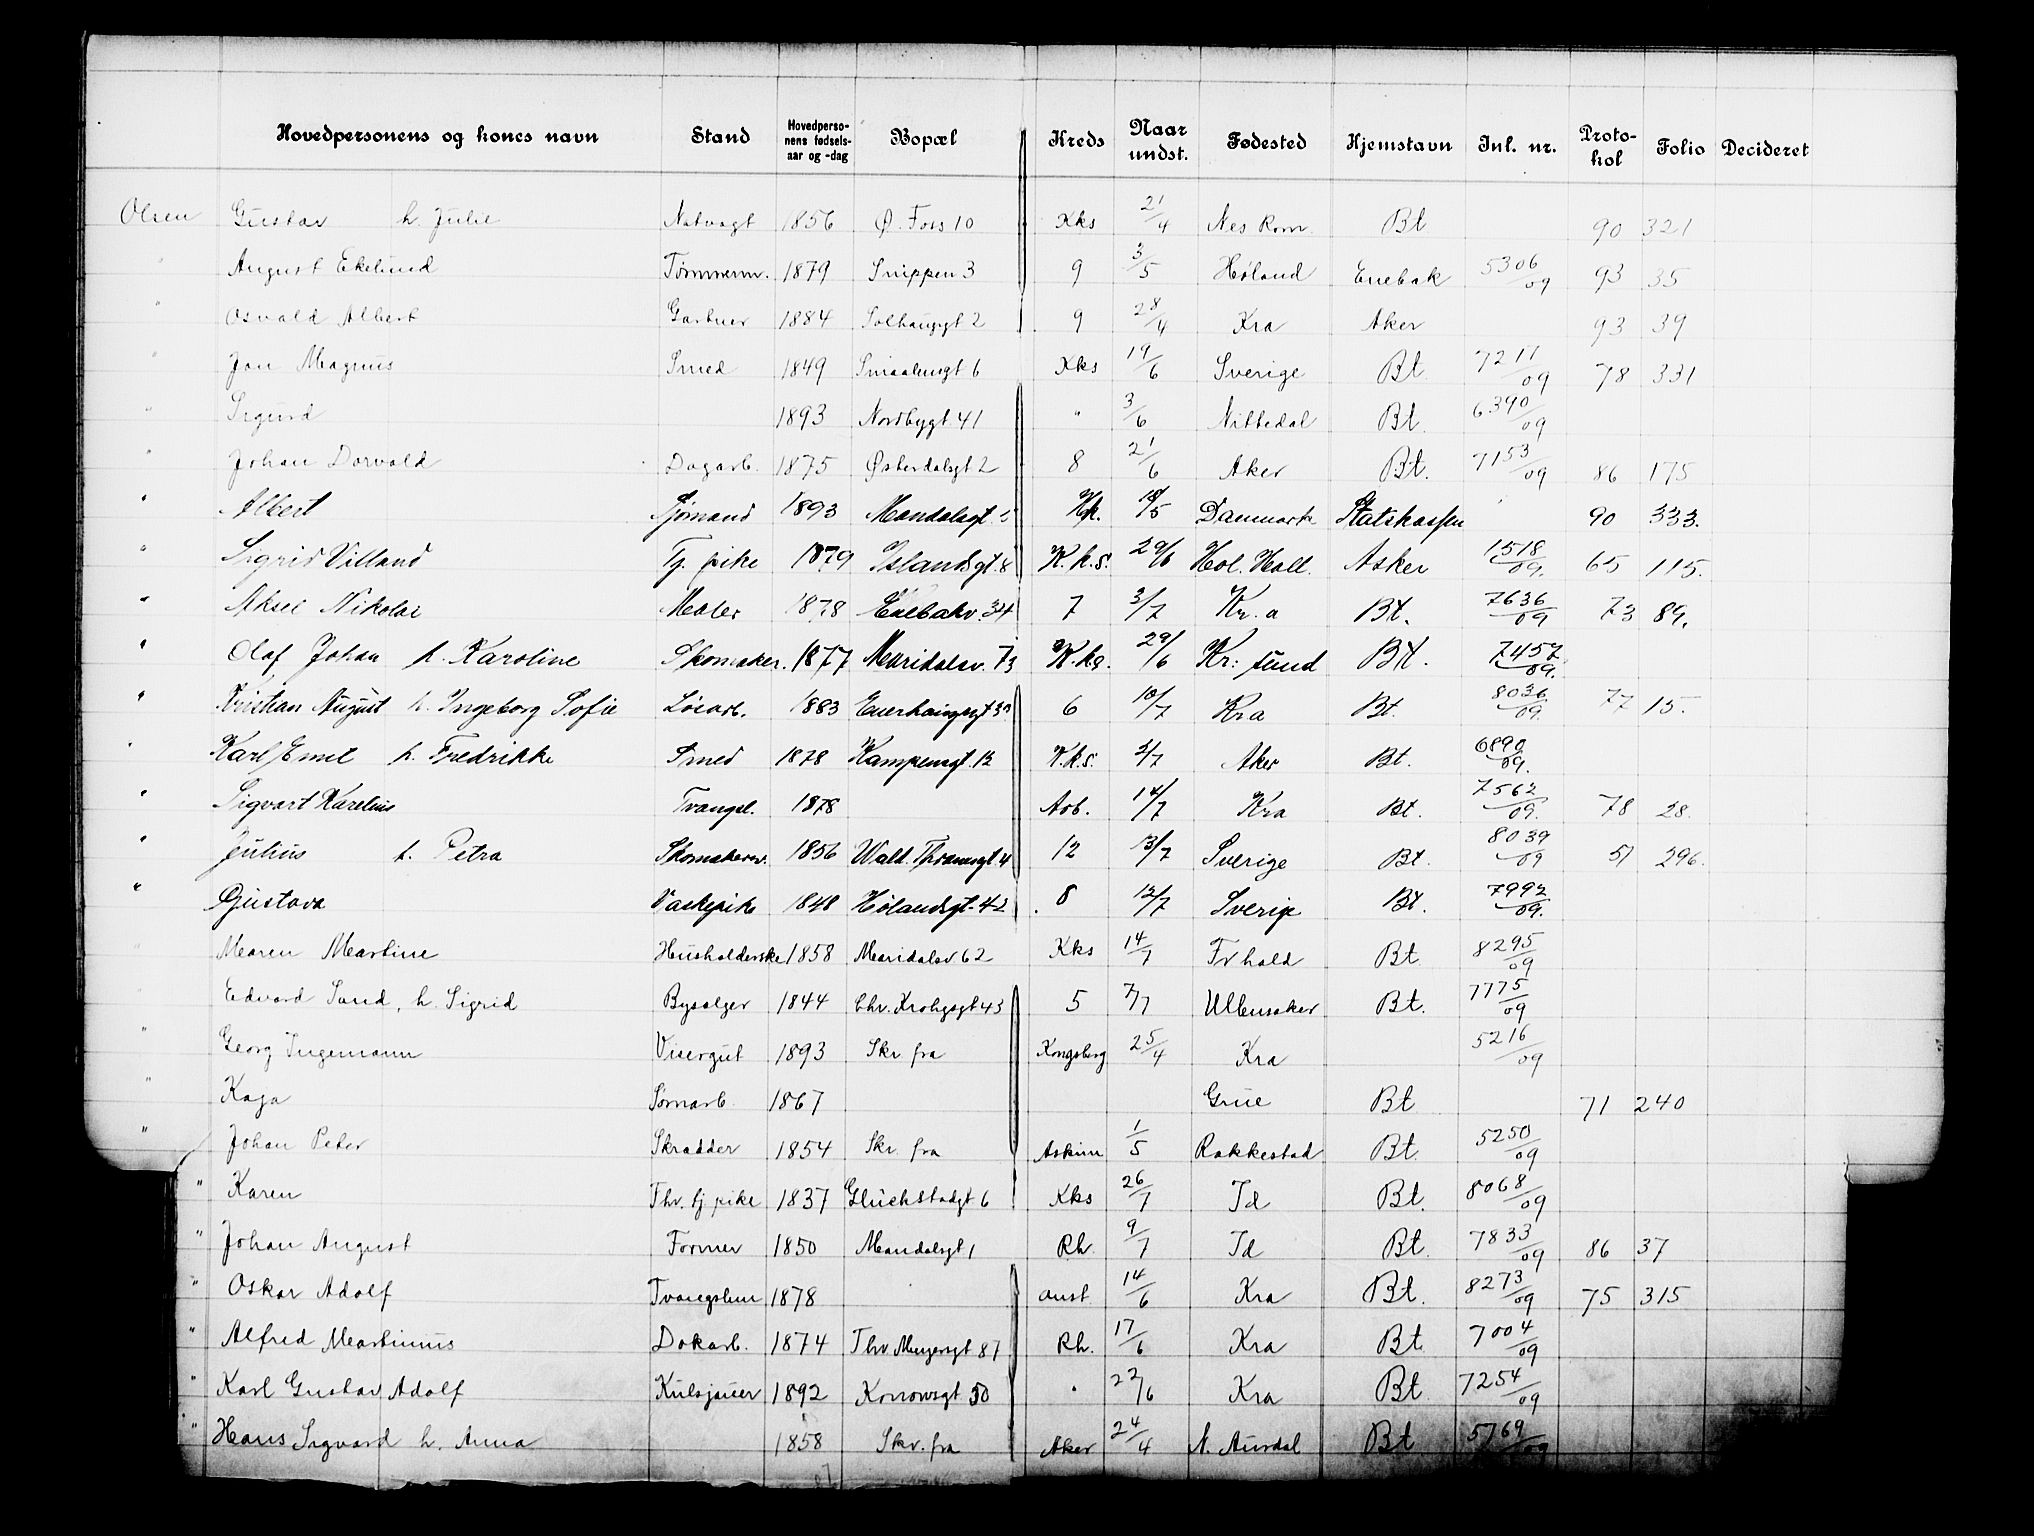 Hovedpersonens og kones navn Stand Hovedpersonens fødselsaar og -dag Bopæl Kreds Naar undst. Fødested Hjemstavn Inl. nr. Protokol Folio Decideret
Olsen Gustav h. Julie Natvagt 1856 Ø. Foss 10 Kks 21/4 Nes Rom. Bt 90 321
" August Ekelund Tømmerm. 1879 Snippen 3 9 3/5 Høland Enebak 5306/09 93 35
" Osvald Albert Gartner 1884 Solhauggt 2 9 28/4 Kra Aker 93 39
" Jan Magnus Smed 1849 Smaalensgt 6 Kks 19/6 Sverige Bt 7217/09 78 331
" Sigurd 1893 Nordbygt 41 " 3/6 Nittedal Bt. 6390/09
" Johan Dorvald Dagarb. 1875 Østerdalsgt 2 8 21/6 Aker Bt. 7153/09 86 175
" Albert Sjømand 1893 Mandalsgt. 5 18/5 Danmark Statskassen 90 333.
" Sigrid Villand Tj. pike 1879 Islandsgt. 8 K.k.s. 29/6 Hol. Hall. Asker 1518/09. 65 115.
" Aksel Nikolai Maler 1878 Enebakv. 34 7 3/7 Kr.a Bt. 7636/09 73 89.
" Olaf Johan h. Karoline Skomaker. 1877 Maridalsv. 73 K.ks. 29/6 Kr: sund Bt. 7457/09.
" Kristian August h. Ingeborg Sofie Løsarb. 1883 Enerhauggt 3 6 10/7 Kra Bt. 8036/09. 77 15.
" Karl Emil h. Fredrikke Smed 1878 Kampensgt. 12 K.k.s. 2/7 Aker Bt. 6890/09.
" Sigvart Karelius Tvangsl. 1878 Arb. 14/7 Kra Bt. 7562/09. 78 28.
" Julius h. Petra Skomakersv. 1856 Wald. Thranesgt 4 12 13/7 Sverige Bt. 8039/09 51 296.
" Gustava Vaskepike 1848 Hølandsgt. 42 8 12/7 Sverige Bt. 7992/09.
" Maren Martine Husholderske 1858 Maridalsv 62 Kks 14/7 Frhald Bt. 8295/09
" Edvard Sand, h. Sigrid Bysælger 1844 Chr. Krohgsgt 43 5 7/7 Ullensaker Bt. 7775/09
" Georg Ingemann Visergut 1893 Skr fra Kongsberg 25/4 Kra 5216/09
" Kaja Sømarb. 1867 Grue Bt 71 240
" Johan Peter Skradder 1854 Skr. fra Askim 1/5 Rakkestad Bt. 5250/09
" Karen Fhv. tj. pike 1837 Glückstadgt 6 Kks 26/7 Id Bt. 8068/09
" Johan August Former 1850 Mandalsgt 1 Rh. 9/7 Id Bt. 7833/09 86 37
" Oskar Adolf Tvangslem 1878 anst 14/6 Kra Bt. 8273/09 75 315
" Alfred Martinius Dokarb. 1874 Thv. Meyersgt 87 Rh. 17/6 Kra Bt. 7004/09
" Karl Gustav Adolf Kulsjauer 1892 50 " 22/6 Kra Bt 7254/09
" Hans Sigvard h. Anna 1858 Skr. fra Aker 24/4 N. Aurdal Bt 5769/09